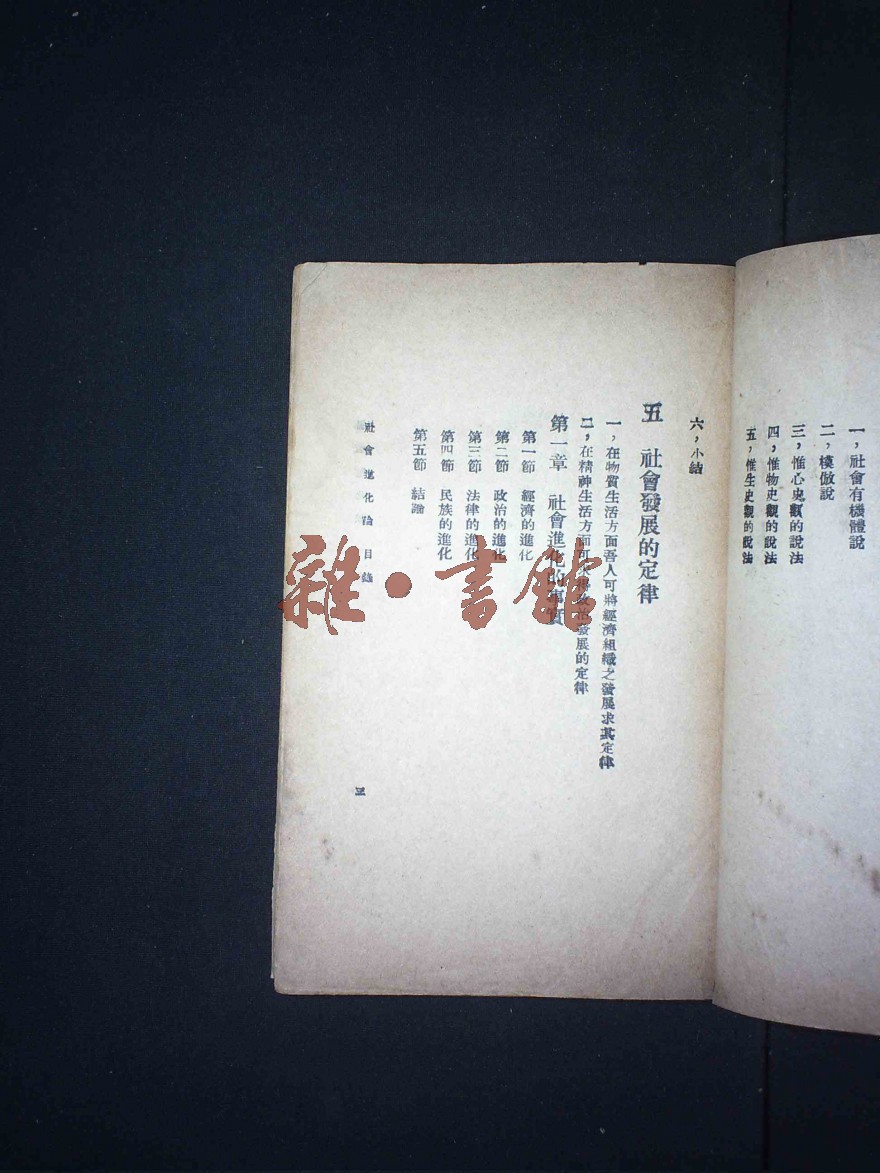 一，社會有機體說
二，模倣說
三，惟心史觀的說法
四，惟物史觀的說法
五，惟生史觀的說法
六，小結
五　社會發展的定律
一，在物質生活方面吾人可將經濟組織之發展求其定律
二，在精神生活方面可政治發展的定律
第一章　社會進化的事實
第一節　經濟的進化
第二節　政治的進化
第三節　法律的進化
第四節　民族的進化
第五節　結論
社會進化論　目錄
三
雜·書館